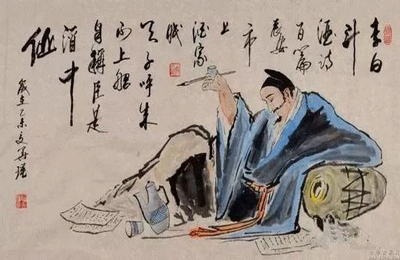 李白
斗
酒诗
百篇
长安
市
上
酒家
眠
天子呼来
不上船
自称臣是
酒中
仙
乙未